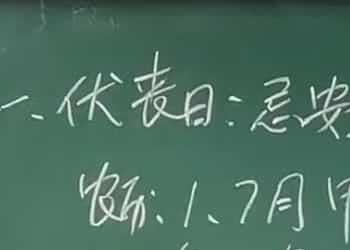 一、伏丧日：忌安
农历：1、7月